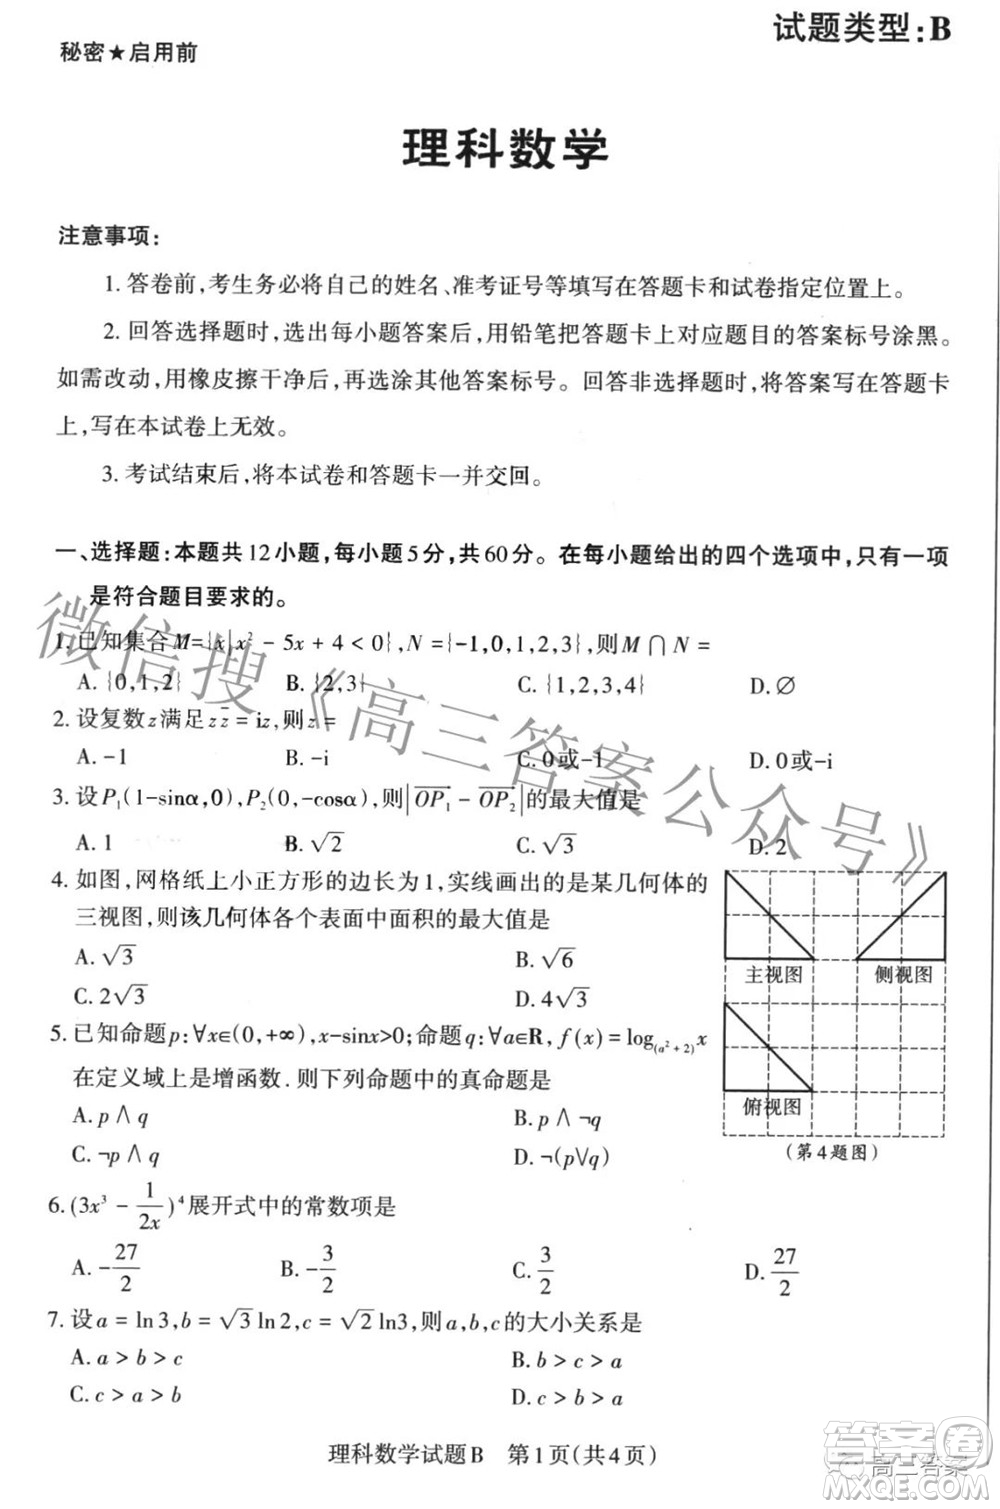 试题类型:B
秘密★启用前
理科数学
注意事项:
1. 答卷前,考生务必将自己的姓名、准考证号等填写在答题卡和试卷指定位置上。
2. 回答选择题时,选出每小题答案后,用铅笔把答题卡上对应题目的答案标号涂黑。
如需改动,用橡皮擦干净后,再选涂其他答案标号。回答非选择题时,将答案写在答题卡
上,写在本试卷上无效。
3. 考试结束后,将本试卷和答题卡一并交回。
一、选择题:本题共12小题,每小题5分,共60分。在每小题给出的四个选项中,只有一项
是符合题目要求的。
1. 已知集合M={x|x² - 5x + 4 < 0},N = {-1,0,1,2,3},则 M ∩ N =
A. {0,1,2} B. {2,3} C. {1,2,3,4} D. ∅
2. 设复数z满足z z̄ = iz,则z =
A. -1 B. -i C. 0或-1 D. 0或-i
3. 设P₁(1-sinα,0),P₂(0,-cosα),则|OP₁ - OP₂|的最大值是
A. 1 B. √2 C. √3 D. 2
4. 如图,网格纸上小正方形的边长为1,实线画出的是某几何体的
三视图,则该几何体各个表面中面积的最大值是
A. √3 B. √6
C. 2√3 D. 4√3
主视图 侧视图
俯视图
(第4题图)
5. 已知命题p:∀x∈(0,+∞),x-sinx>0;命题q:∀a∈R, f(x) = log₍ₐ²₊₂₎x
在定义域上是增函数. 则下列命题中的真命题是
A. p∧q B. p∧¬q
C. ¬p∧q D. ¬(p∨q)
6. (3x³ - 1/2x)⁴展开式中的常数项是
A. -27/2 B. -3/2 C. 3/2 D. 27/2
7. 设a = ln3,b = √3 ln2,c = √2 ln3,则a,b,c的大小关系是
A. a > b > c B. b > c > a
C. c > a > b D. c > b > a
理科数学试题B 第1页(共4页)
微信搜《高三答案公众号》
答案圈
高三答案
MXQE.COM